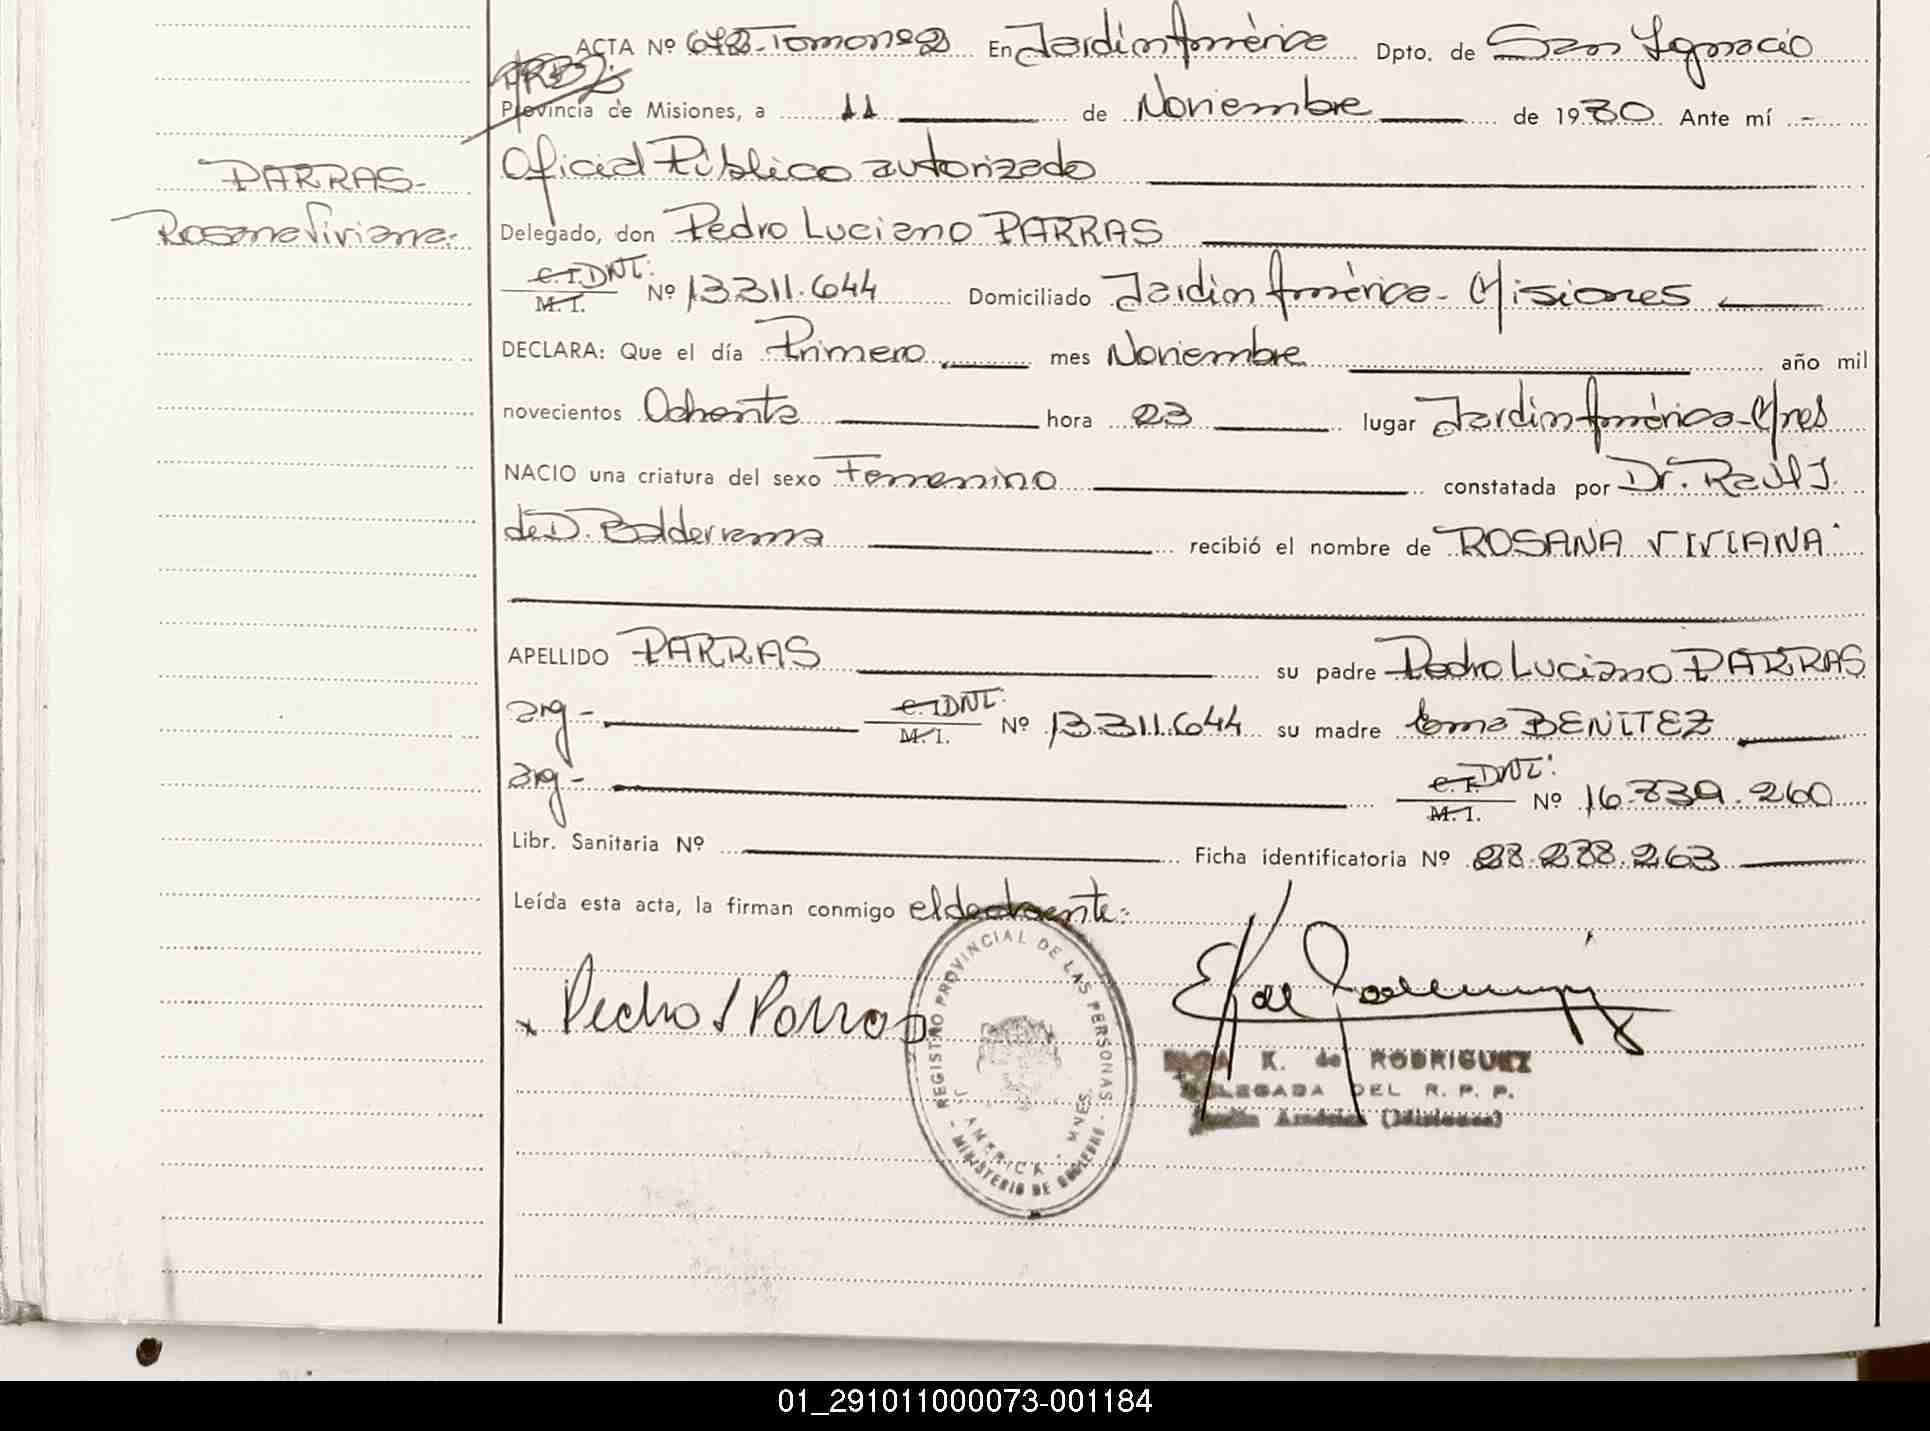 ACTA Nº 672-Tomo nº2 En Jardin América Dpto. de San Ignacio
Provincia de Misiones, a 11 de Noviembre de 1980 Ante mí -
PARRAS- Oficial Público autorizado
Rosana Viviana.- Delegado, don Pedro Luciano PARRAS
C.I. DNI. M.I. Nº 13.311.644 Domiciliado Jardin América - Misiones
DECLARA: Que el día Primero mes Noviembre año mil
novecientos Ochenta hora 23 lugar Jardin América-Mnes
NACIO una criatura del sexo Femenino constatada por Dr. Raúl J.
de D. Balderrama recibió el nombre de ROSANA VIVIANA
APELLIDO PARRAS su padre Pedro Luciano PARRAS
arg - C.I. DNI. M.I. Nº 13.311.644 su madre Ema BENITEZ
arg - C.I. DNI. M.I. Nº 16.839.260
Libr. Sanitaria Nº Ficha identificatoria Nº 28.288.263
Leída esta acta, la firman conmigo el declarante.-
x Pedro L Parras
REGISTRO PROVINCIAL DE LAS PERSONAS
J. AMERICA - MNES.
- MINISTERIO DE GOBIERNO -
K. de RODRIGUEZ
DELEGADA DEL R. P. P.
Jardín América (Misiones)
01_291011000073-001184